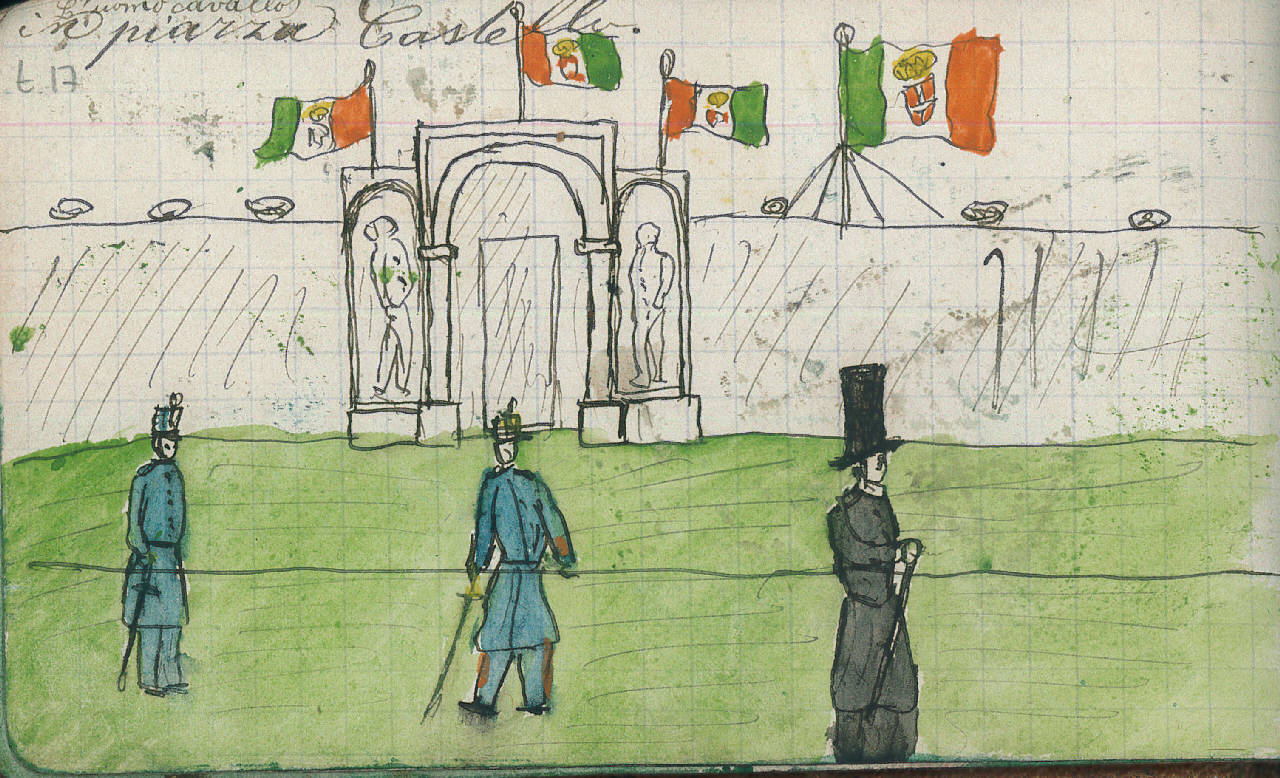 L'uomo cavallo
in piazza Castello.
t. 17